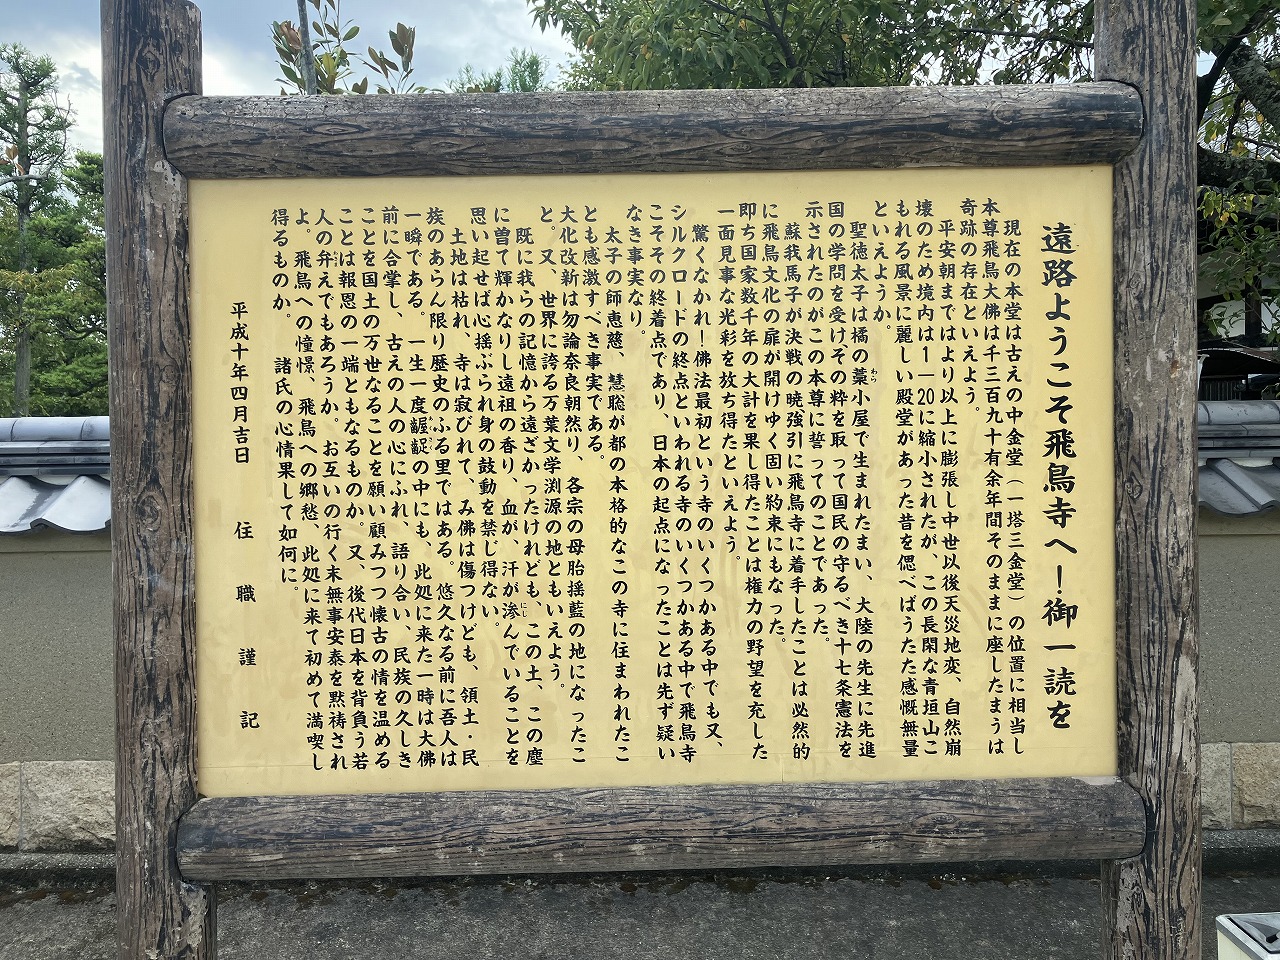 遠路ようこそ飛鳥寺へ！御一読を
現在の本堂は古えの中金堂（一塔三金堂）の位置に相当し
本尊飛鳥大佛は千三百九十有余年間そのままに座したまうは
奇跡の存在といえよう。
平安朝まではより以上に膨張し中世以後天災地変、自然崩
壊のため境内は1―20に縮小されたが、この長閑な青垣山こ
もれる風景に麗しい殿堂があった昔を偲べばうたた感慨無量
といえようか。
聖徳太子は橘の藁小屋で生まれたまい、大陸の先生に先進
わら
国の学問を受けその粋を取って国民の守るべき十七条憲法を
示されたのがこの本尊に誓ってのことであった。
蘇我馬子が決戦の暁強引に飛鳥寺に着手したことは必然的
に飛鳥文化の扉が開けゆく固い約束にもなった。
即ち国家数千年の大計を果し得たことは権力の野望を充した
一面見事な光彩を放ち得たといえよう。
驚くなかれ！佛法最初という寺のいくつかある中でも又、
シルクロードの終点といわれる寺のいくつかある中で飛鳥寺
こそその終着点であり、日本の起点になったことは先ず疑い
なき事実なり。
太子の師恵慈、慧聡が都の本格的なこの寺に住まわれたこ
とも感激すべき事実である。
大化改新は勿論奈良朝然り、各宗の母胎揺藍の地になったこ
と。又、世界に誇る万葉文学渕源の地ともいえよう。
既に我らの記憶から遠ざかったけれども、この土、この塵
に曽て輝かなりし遠祖の香り、血が、汗が滲んでいることを
にじ
思い起せば心揺ぶられ身の鼓動を禁じ得ない。
土地は枯れ、寺は寂びれて、み佛は傷つけども、領土・民
族のあらん限り歴史のふる里ではある。悠久なる前に吾人は
一瞬である。一生一度齷齪の中にも、此処に来た一時は大佛
前に合掌し、古えの人の心にふれ、語り合い、民族の久しき
ことを国土の万世なることを願い顧みつつ懐古の情を温める
ことは報恩の一端ともなるものか。又、後代日本を背負う若
人の弁えでもあろうか。お互いの行く末無事安泰を黙祷され
よ。飛鳥への憧憬、飛鳥への郷愁、此処に来て初めて満喫し
得るものか。　諸氏の心情果して如何に。
平成十年四月吉日　住職謹記